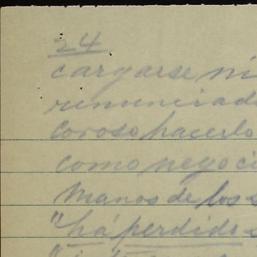 24
cargarse ni
renunciad
coroso hacerlo
como negoci
manos de los
"há perdido